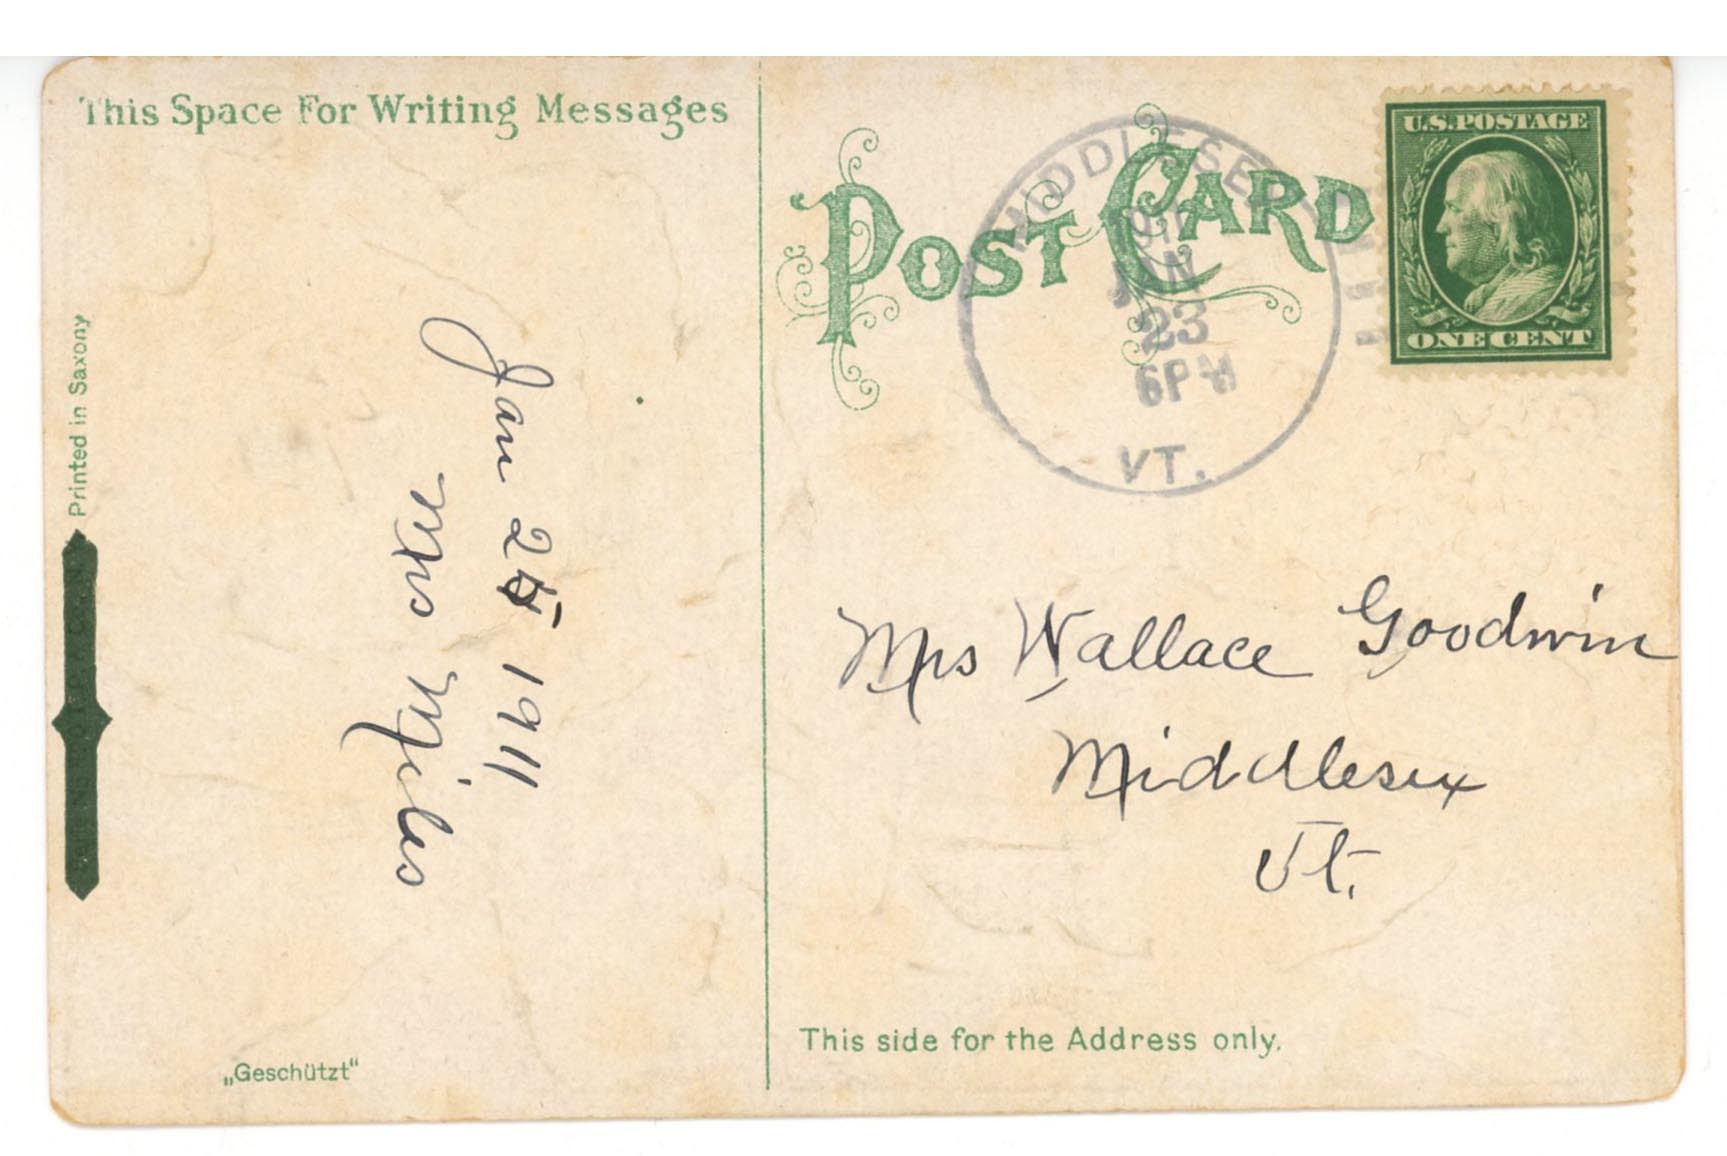 This Space For Writing Messages
Printed in Saxony
Jan 25 1911
Mrs Miles
„Geschützt“
POST CARD
MIDDLESEX
1911
JAN
23
6PM
VT.
U.S. POSTAGE
ONE CENT
Mrs Wallace Goodwin
Middlesex
Vt.
This side for the Address only.